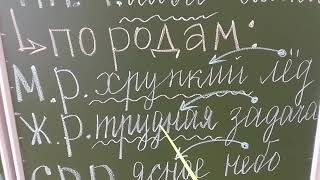 ↳породам:
м.р. хрупкий лёд
ж.р. трудная задача
ср.р. ясное небо